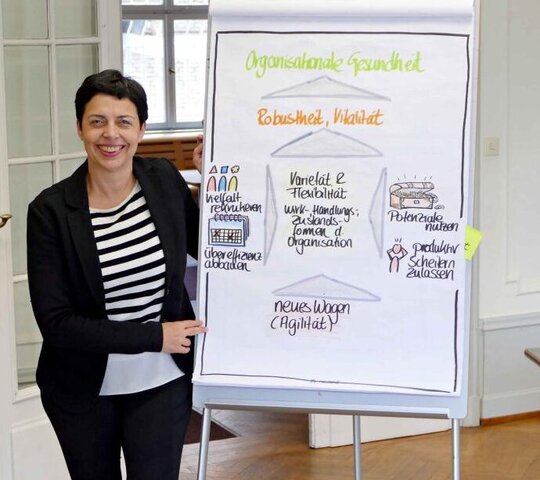 Organisationale Gesundheit
Robustheit, Vitalität
Varietät &
Flexibilität
Wirk-, Handlungs-,
Zustands-
formen d.
Organisation
Vielfalt
rekrutieren
Übereffizienz
abbauen
Potenziale
nutzen
produktiv
Scheitern
zulassen
neues Wagen
(Agilität)